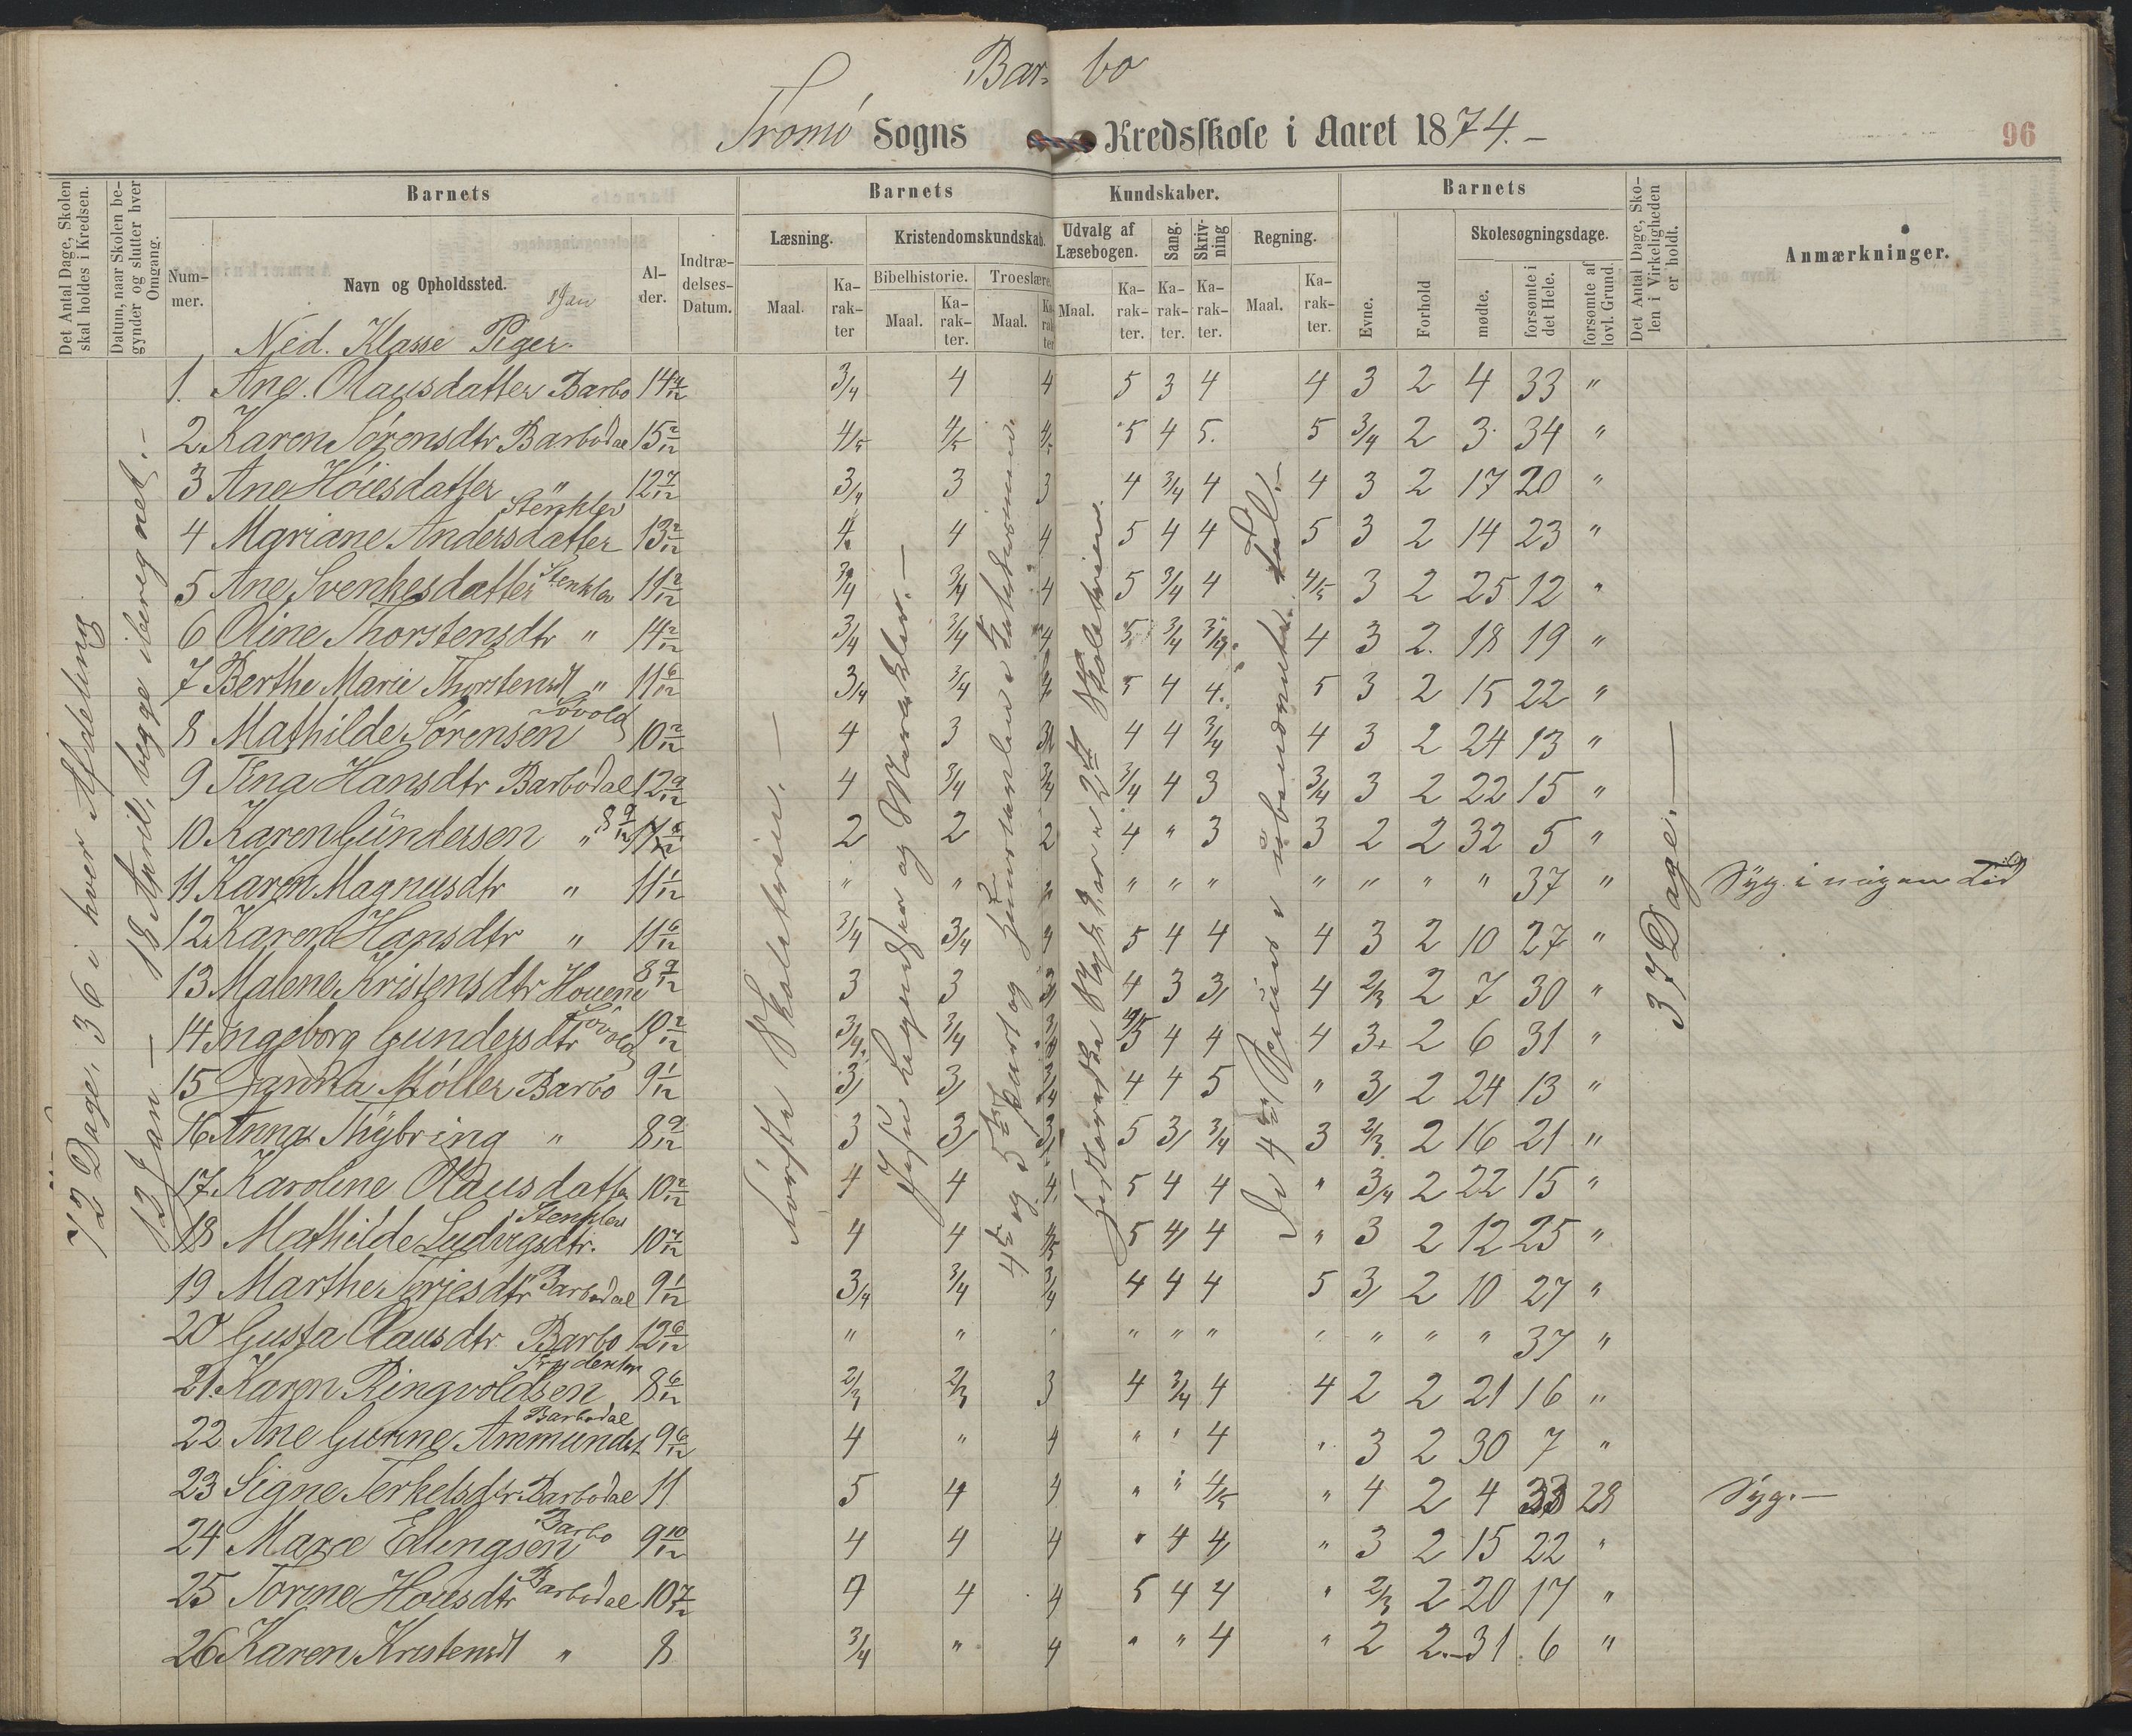 Bar- bo
Tromø Sogns Kredsskole i Aaret 1874.-
96
Det Antal Dage, Skolen skal holdes i Kredsen.
Datum, naar Skolen begynder og slutter hver Omgang.
Barnets
Barnets
Kundskaber.
Barnets
Det Antal Dage, Skolen i Virkeligheden er holdt.
Anmærkninger.
Nummer.
Navn og Opholdssted.
Alder.
Indtrædelses-Datum.
Læsning.
Kristendomskundskab.
Udvalg af Læsebogen.
Sang.
Skrivning
Regning.
Evne.
Forhold
Skolesøgningsdage.
Bibelhistorie.
Troeslære.
Maal.
Karakter
Maal.
Karakter.
Maal.
Karakter
Maal.
Karakter.
Karakter.
Karakter.
Maal.
Karakter.
mødte.
forsømte i det Hele.
forsømte af lovl. Grund.
1 Jan
Ned. Klasse Piger.
72 Dage, 36 i hver Afdeling
12 Jan — 18 April, begge iberegnet.-
37 Dage.—
1. Ane Olausdatter Barbo 14 4/12 3/4 4 4 5 3 4 4 3 2 4 33 "
2 Karen Sørensdtr Barbodal 15 2/12 4/5 4/5 4/5 5 4 5. 5 3/4 2 3 34 "
3 Ane Høiesdatter " 12 7/12 3/4 3 3 4 3/4 4 4 3 2 17 20 "
4 Mariane Andersdatter Stenklev 13 2/12 4 4 4 5 4 4 5 3 2 14 23 "
5 Ane Svenkesdatter Stenklev 11 2/12 3/4 3/4 4 5 3/4 4 4/5 3 2 25 12 "
6 Oline Thorstensdtr " 14 2/12 3/4 3/4 4 5 3/4 3/4 4 3 2. 18 19 "
7 Berthe Marie Thorstensdt " 11 6/12 3/4 3/4 4 5 4 4. 5 3 2 15 22 "
8 Mathilde Sørensen Lövold 10 2/12 4 3 3/4 4 4 3/4 4 3 2 24 13 "
9 Tena Hansdtr Barbodal 12 9/12 4 3/4 3/4 3/4 4 3 3/4 3 2 22 15 "
10 Karen Gundersen " 8 9/12 2 2 2 4 " 3 3 2 2 32 5 "
11 Karen Magnusdtr " 11 1/12 " " " " " " " " " " 37 " Syg i nogen Tid
12 Karen Hansdtr " 11 6/12 3/4 3/4 4 5 4 4 4 3 2 10 27 "
13 Malene Kristensdtr Houene 8 7/12 3 3 3/ 4 3 3/ 4 2/3 2 7 30 "
14 Ingeborg Gundersdtr Lövold 10 2/12 3/4 3/4 3/4 4/5 4 4 4 3+ 2 6 31 "
15 Janna Möller Barbo 9 1/12 3/ 3/ 3/4 4 4 5 " 3/ 2 24 13 "
16 Anna Thybring " 8 9/12 3 3/ 3/ 5 3/ 3/4 3 2/3 2 16 21 "
17 Karoline Olausdatter 10 2/12 4 4 4. 5 4 4 " 3/4 2 22 15 "
18 Mathilde Ludvigsdtr. Stenklev 10 7/12 4 4 4/5 5 4/ 4 " 3 2 12 25 "
19 Marthe Terjesdtr Barbodal 9 1/12 3/4 3/4 3/4 4 4 4 5 3/ 2 10 27 "
20 Gusta Olausdtr Barbo 12 6/12 " " " " " " " " " " 37 "
21. Karen Ringvoldsen 8 6/12 2/3 2/3 3 4 3/4 4 4 2 2 21 16 "
22 Ane Gurine Ammundst Barbodal 9 6/12 4 " 4 " " 4 " 3 2 30 7 "
23 Signe Terkelsdtr Barbodal 11 5 4 4 " " 4/5 " 4 2 4 33 28 Syg.—
24 Marie Ellingsen Barbo 9 10/12 4 4 4 " 4 4/ " 3 2 15 22 "
25 Torine Høiesdtr Barbodal 10 7/12 4 4 4 5 4 4 " 2/3 2 20 17 "
26 Karen Kristensdt " 8 3/4 " 4 " " 4 " 2 2.- 31. 6 "